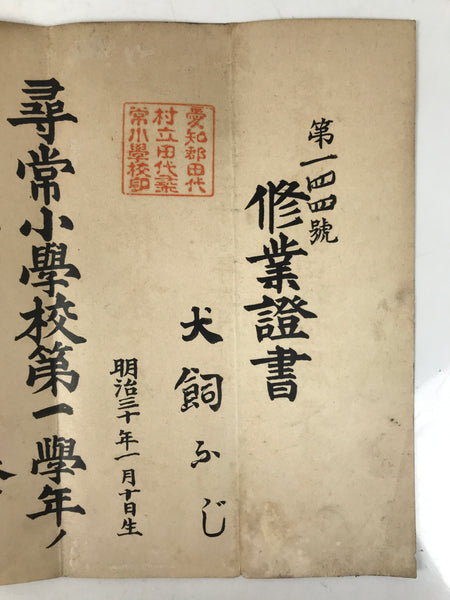 第一四四號
修業證書
犬飼ふじ
明治三十年一月十日生
愛知郡田代
村立田代尋
常小學校印
尋常小學校第一學年ノ